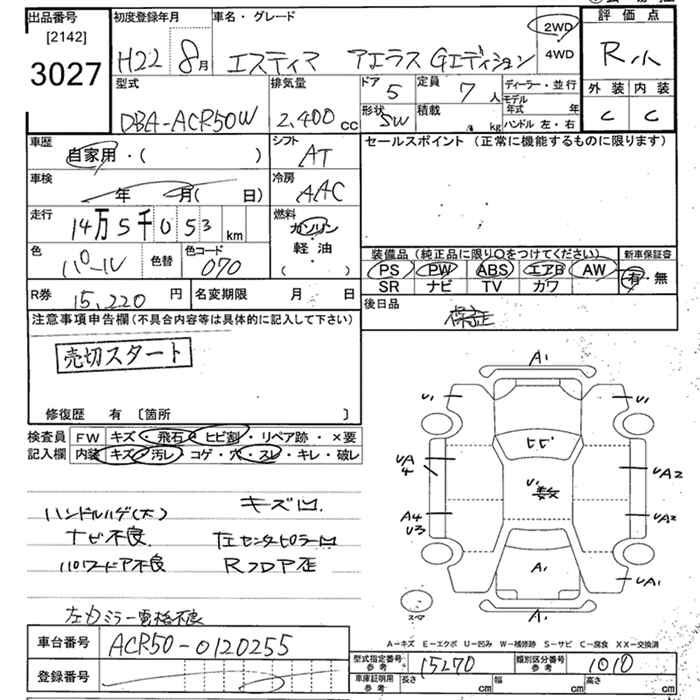 出品番号 初度登録年月 車名・グレード 評価点
[2142]
3027 H22 8月 エスティマ アエラス Gエディション 2WD 4WD R小
型式 排気量 ドア 定員 ディーラー・並行 外装 内装
DBA-ACR50W 2,400cc 5 7人 モデル年式 年 C C
形状 5W 積載 kg ハンドル 左・右
車歴 シフト セールスポイント (正常に機能するものに限ります)
自家用・( ) AT
車検 冷房
年 月( 日) AAC
走行 燃料
14万5千053km ガソリン
軽油
( )
色 色替 色コード 装備品(純正品に限り○をつけてください) 新車保証書
パール 070 PS PW ABS エアB AW 有・無
SR ナビ TV カワ
R券 15,220円 名変期限 月 日 後日品
注意事項申告欄(不具合内容等は具体的に記入して下さい) 保証
売切スタート
修復歴 有 〔箇所 〕
検査員 FW キズ・飛石・ヒビ割・リペア跡・×要
記入欄 内装 キズ・汚レ・コゲ・穴・スレ・キレ・破レ
ハンドルハゲ(大) キズ凹
ナビ不良 左センターピラー凹
パワードア不良 RフロアP歪
左カミラー電格不良
A1
U1 U1
ヒビ
UA4 U1 数 UA2
A4 U3 UA2
A1
UA1
スペア
A1
A-キズ E-エクボ U-凹み W-補修跡 S-サビ C-腐食 XX-交換済
車台番号 ACR50-0120255
登録番号
型式指定番号 参考 15270 類別区分番号 参考 1010
車庫証明用 参考 長さ cm 幅 cm 高さ cm